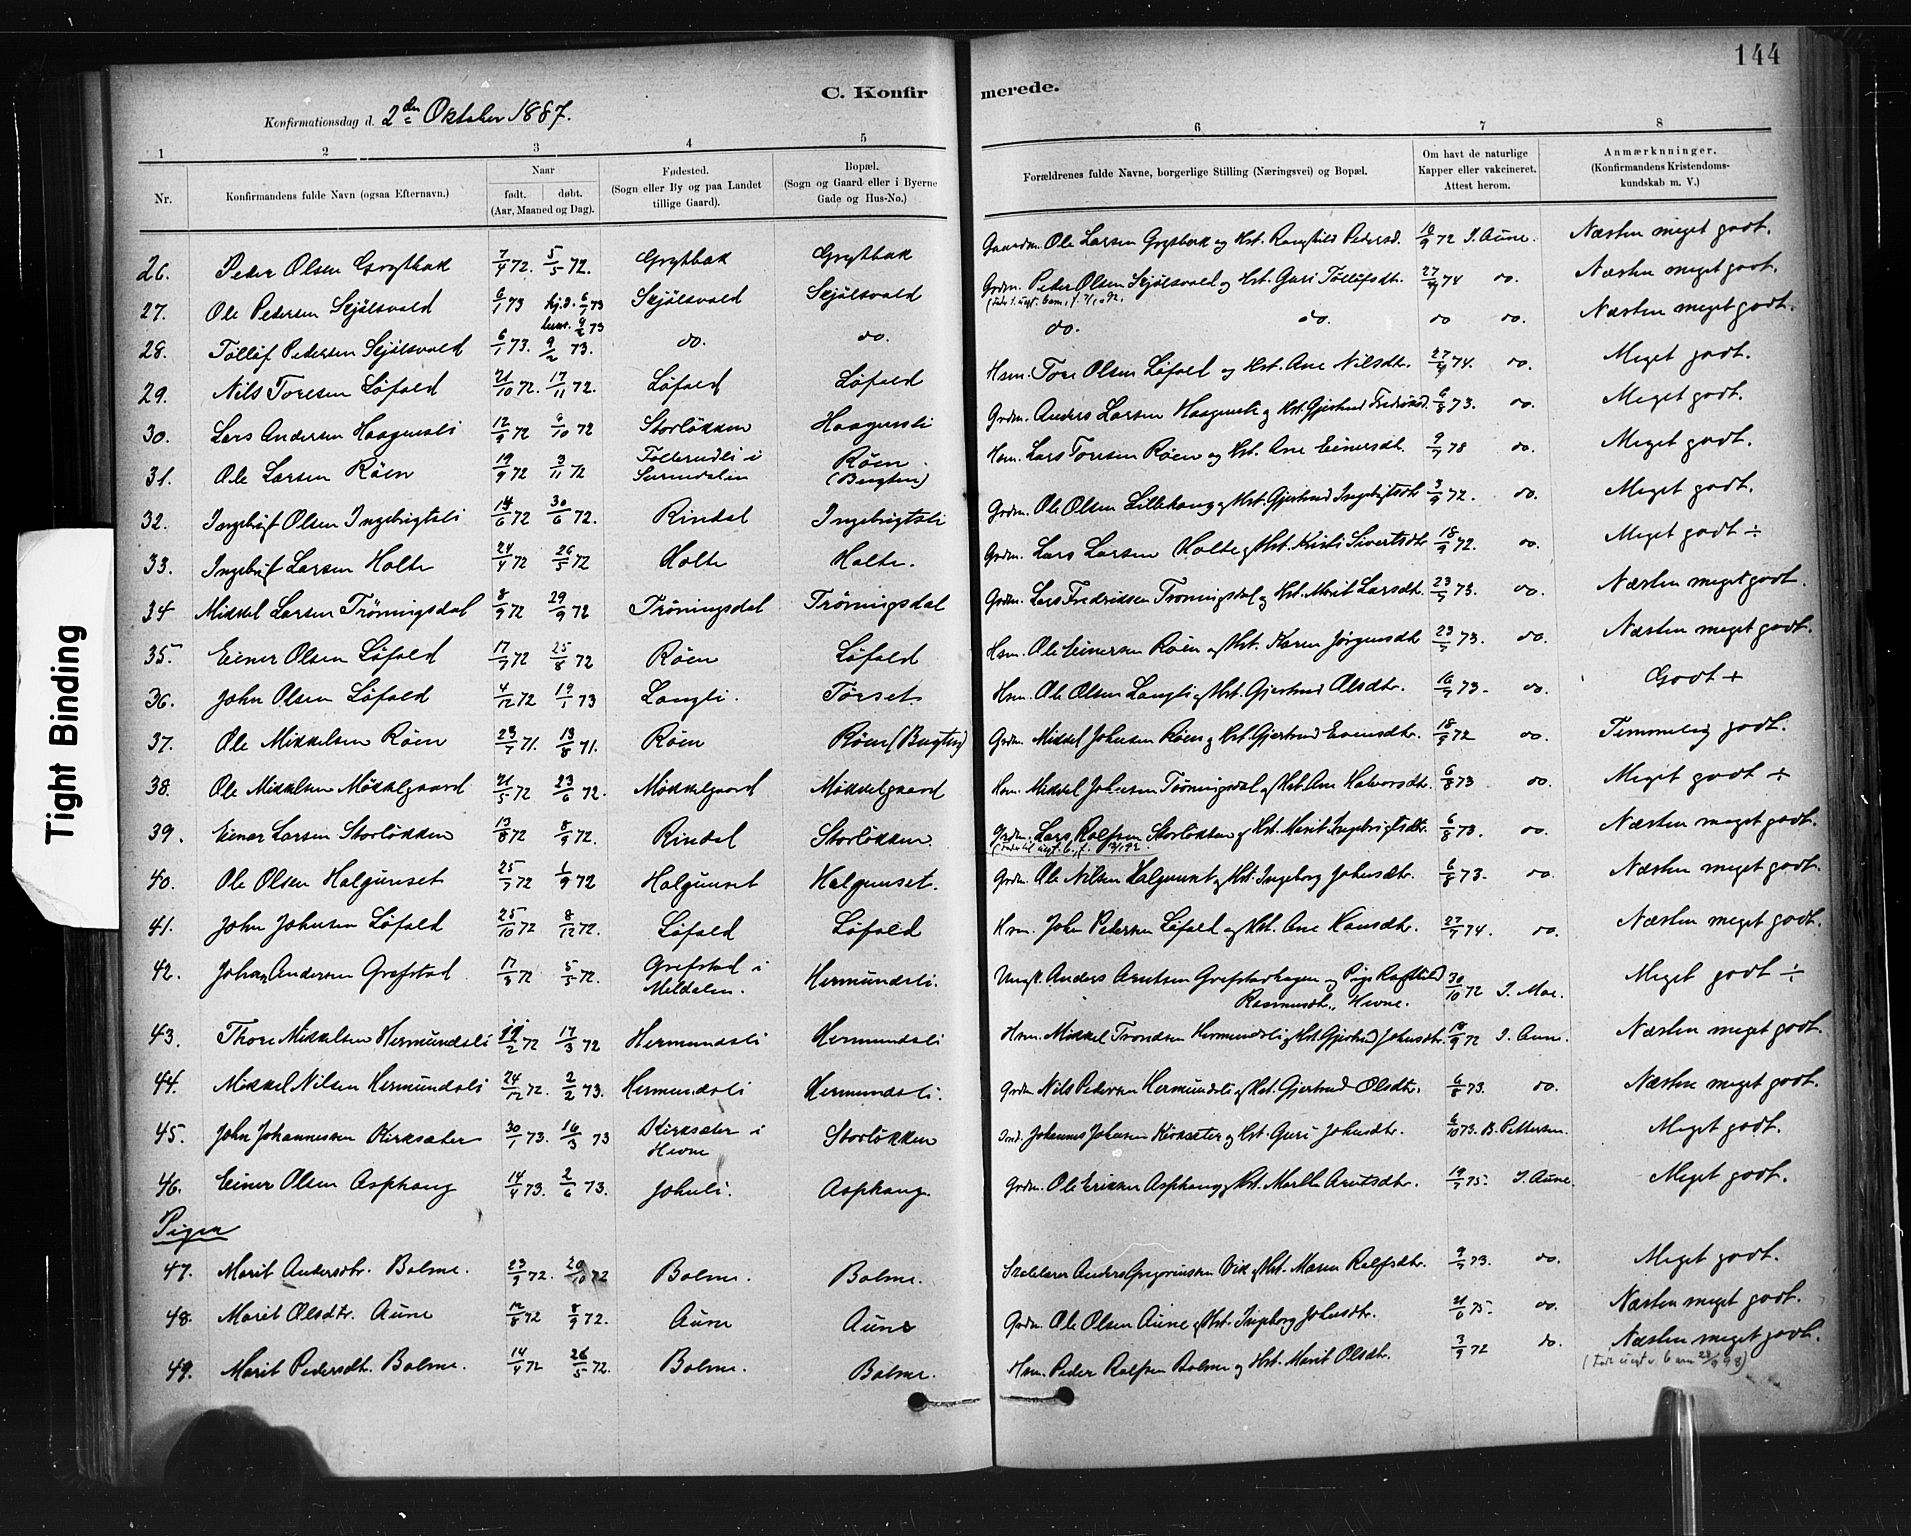 144
C. Konfirmerede.
Konfirmationsdag d. 2den Oktober 1887.
1 2 3 4 5 6 7 8
Nr. Konfirmandens fulde Navn (ogsaa Efternavn.) Naar født. døbt. (Aar, Maaned og Dag). Fødested. (Sogn eller By og paa Landet tillige Gaard). Bopæl. (Sogn og Gaard eller i Byerne Gade og Hus-No.) Forældrenes fulde Navne, borgerlige Stilling (Næringsvei) og Bopæl. Om havt de naturlige Kapper eller vakcineret. Attest herom. Anmærkninger. (Konfirmandens Kristendomskundskab m. V.)
26. Peder Olsen Grytbak 7/4 72. 5/5 72. Grytbak Grytbak Gaardm. Ole Larsen Grytbak og Hst. Ranghild Pedersd. 18/9 72 I. Aune. Næsten meget godt.
27. Ole Pedersen Skjølsvold 6/1 73 hj.d. 6/1 73 9/2 73 Skjølsvold Skjølsvold Grdm. Peder Olsen Skjølsvold og Hst. Guri Tølløfsdt. 27/9 74 do. Næsten meget godt.
28. Tølløf Pedersen Skjølsvold 6/1 73. 9/2 73. do. do. do. do. do do. Næsten meget godt.
29. Nils Toresen Løfald 21/10 72. 17/11 72. Løfald Løfald Hsm. Tore Olsen Løfald og Hst. Ane Nilsdt. 27/9 74. do. Meget godt.
30. Lars Andersen Haagensli 12/9 72 6/10 72 Storløkken Haagensli Grdm. Anders Larsen Haagensli og Hst. Gjertrud Fredriksd. 6/8 73. do. Meget godt.
31. Ole Larsen Røen 19/9 72 3/11 72 i Surendalen Røen (Bugten) Hsm. Lars Toresen Røen og Hst. Ane Einersdt. 9/7 78 do. Meget godt.
32. Ingebrigt Olsen Ingebrigtsli 14/6 72 30/6 72. Rindal Ingebrigtsli Grdm. Ole Olsen Lillehaug og Hst. Gjertrud Ingebrigtsdt 3/9 72. do. Meget godt.
33. Ingebrigt Larsen Holte 24/4 72 26/5 72 Holte Holte. Grdm. Lars Larsen Holte og Hst. Kristi Sivertsdtr 18/9 72. do. Meget godt ÷
34 Mikkel Larsen Trøningsdal 8/9 72 29/9 72 Trøningsdal Trøningsdal Grdm. Lars Fredriksen Trøningsdal og Hst. Marit Larsdtr. 23/7 73. do. Næsten meget godt.
35. Einer Olsen Løfald 17/7 72 25/8 72 Røen Løfald Hsm. Ole Einersen Røen og Hst. Karen Jørgensdt 23/7 73. do. Næsten meget godt.
36. John Olsen Løfald 4/12 72 19/1 73 Langli. Tørset. Hsm. Ole Olsen Langli og Hst. Gjertrud Olsdtr. 16/7 73. do. Godt +
37. Ole Mikkelsen Røen 23/7 71. 13/8 71. Røen Røen (Bugten) Grdm. Mikkel Johnsen Røen og Hst. Gjertrud Evensdtr. 18/9 72 do. Temmelig godt.
38. Ole Mikkelsen Møkkelgaard 21/5 72 23/6 72. Møkkelgaard Møkkelgaard Hsm. Mikkel Johnsen Trøningsdal og Hst. Ane Halvorsdtr. 6/8 73 do. Meget godt ÷
39. Einer Larsen Storløkken 13/8 72 8/9 72. Rindal Storløkken. Grdm. Lars Rolfsen Storløkken og Hst. Marit Ingebrigtsdtr. 6/8 73. do. Næsten meget godt.
40. Ole Olsen Halgunset 25/7 72 1/9 72 Halgunset Halgunset. Grdm. Ole Nilsen Halgunset og Hst. Ingeborg Johnsdtr. 6/8 73. do. Næsten meget godt.
41. John Johnsen Løfald 25/10 72 8/12 72. Løfald Løfald Hsm. John Pedersen Løfald og Hst. Ane Hansdtr. 27/7 74. do. Næsten meget godt.
42. Johan Andersen Grefstad 17/3 72 5/5 72. Grefstad i Meldalen. Hermundsli. Ungk. Anders Arntsen Grefstadhagen og Pige Ragnhild Rasmusdt., Hevne. 30/10 72 I. Moe. Meget godt ÷
43. Thore Mikkelsen Hermundsli 2 72 17/3 72 Hermundsli Hermundsli Hsm. Mikkel Trondsen Hermundsli og Hst. Gjertrud Johnsdtr. 18/9 72 I. Aune. Næsten meget godt.
44. Mikkel Nilsen Hermundsli 24/12 72. 2/2 73. Hermundsli Hermundsli. Grdm. Nils Pedersen Hermundsli og Hst. Gjertrud Olsdtr. 6/8 73. do. Næsten meget godt.
45. John Johannessen Kirksæter 30/1 73. 16/3 73 Kirksæter i Hevne Storløkken Johannes Johnsen Kirksæter og Hst. Guri Johnsdtr. 6/10 73. B. Pettersen. Meget godt.
46. Einer Olsen Asphaug 14/4 73. 2/6 73. Johnli. Asphaug. Grdm. Ole Eriksen Asphaug og Hst. Marith Arntsdtr. 19/7 75. I. Aune. Meget godt.
Piger
47. Marit Andersdtr. Bolme. 23/9 72. 20/10 72 Bolme. Bolme. Anders Gregoriussen Vik og Hst. Maren Rolfsdtr. 9/7 73. do. Meget godt.
48. Marit Olsdtr. Aune 12/8 72 8/9 72. Aune Aune Grdm. Ole Olsen Aune og Hst. Ingeborg Johnsdtr. 21/6 75. do. Næsten meget godt.
49. Marit Pedersdt. Bolme. 14/4 72 26/5 72. Bolme. Bolme. Hsm. Peder Rolfsen Bolme og Hst. Marit Olsdtr. 3/9 72 do. Næsten meget godt.
Tight Binding